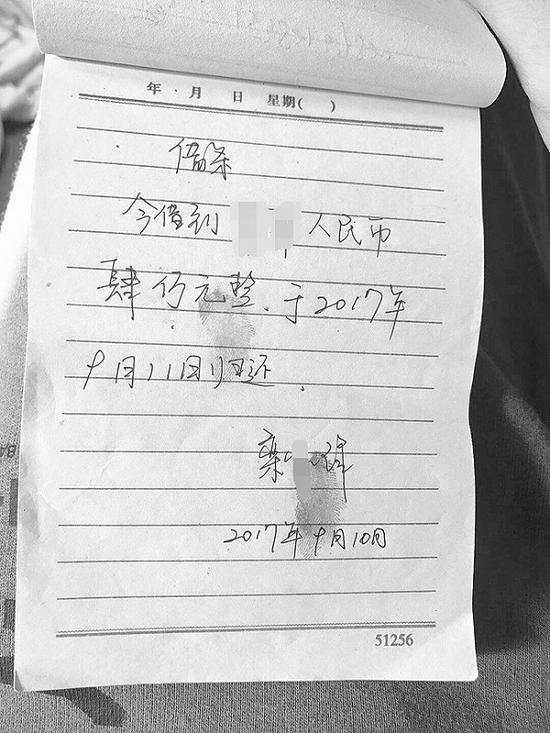 年 月 日 星期( )
借条
今借到 人民币
肆仟元整.于2017年
9月11日归还.
栾
2017年9月10日
51256